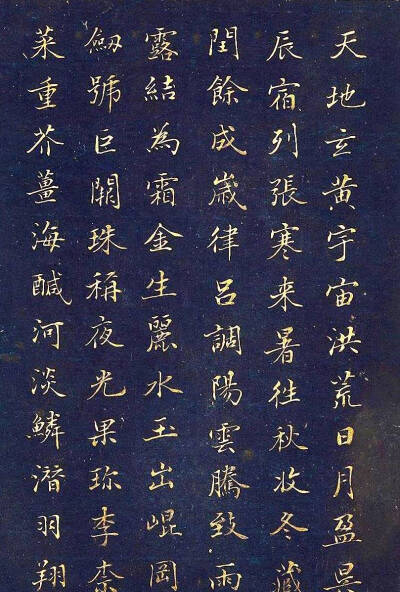 天地玄黄宇宙洪荒日月盈昃
辰宿列張寒来暑往秋收冬藏
閏餘成歲律呂調陽雲騰致雨
露結為霜金生麗水玉出崐岡
劒號巨闕珠稱夜光果珎李柰
菜重芥薑海醎河淡鱗潛羽翔